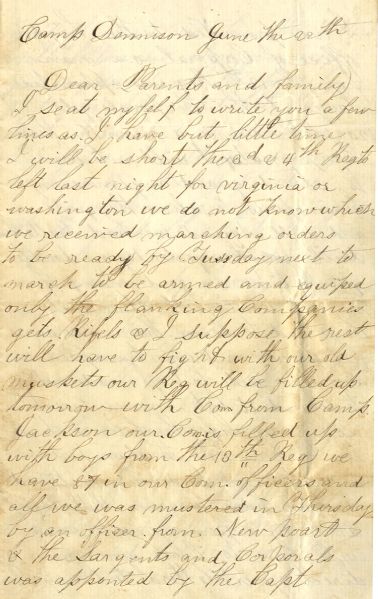 Camp Dennison June the 22th
Dear Parents and family
I seat myself to write you a few
lines as I have but little time
I will be short the 3d & 4th Regts
left last night for virginia or
washington we do not know which
we received marching orders
to be ready by Tuesday next to
march to be armed and equiped
only the flanking Companies
gets Rifels & I suppose the rest
will have to fight with our old
muskets our Reg will be filled up
tomorrow with Com from Camp
Jackson our Com is filled up
with boys from the 10th Reg we
have 87 in our Com. officers and
all we was mustered in Thursday
by an officer from New poart
& the Sargents and Corporals
was appointed by the Capt